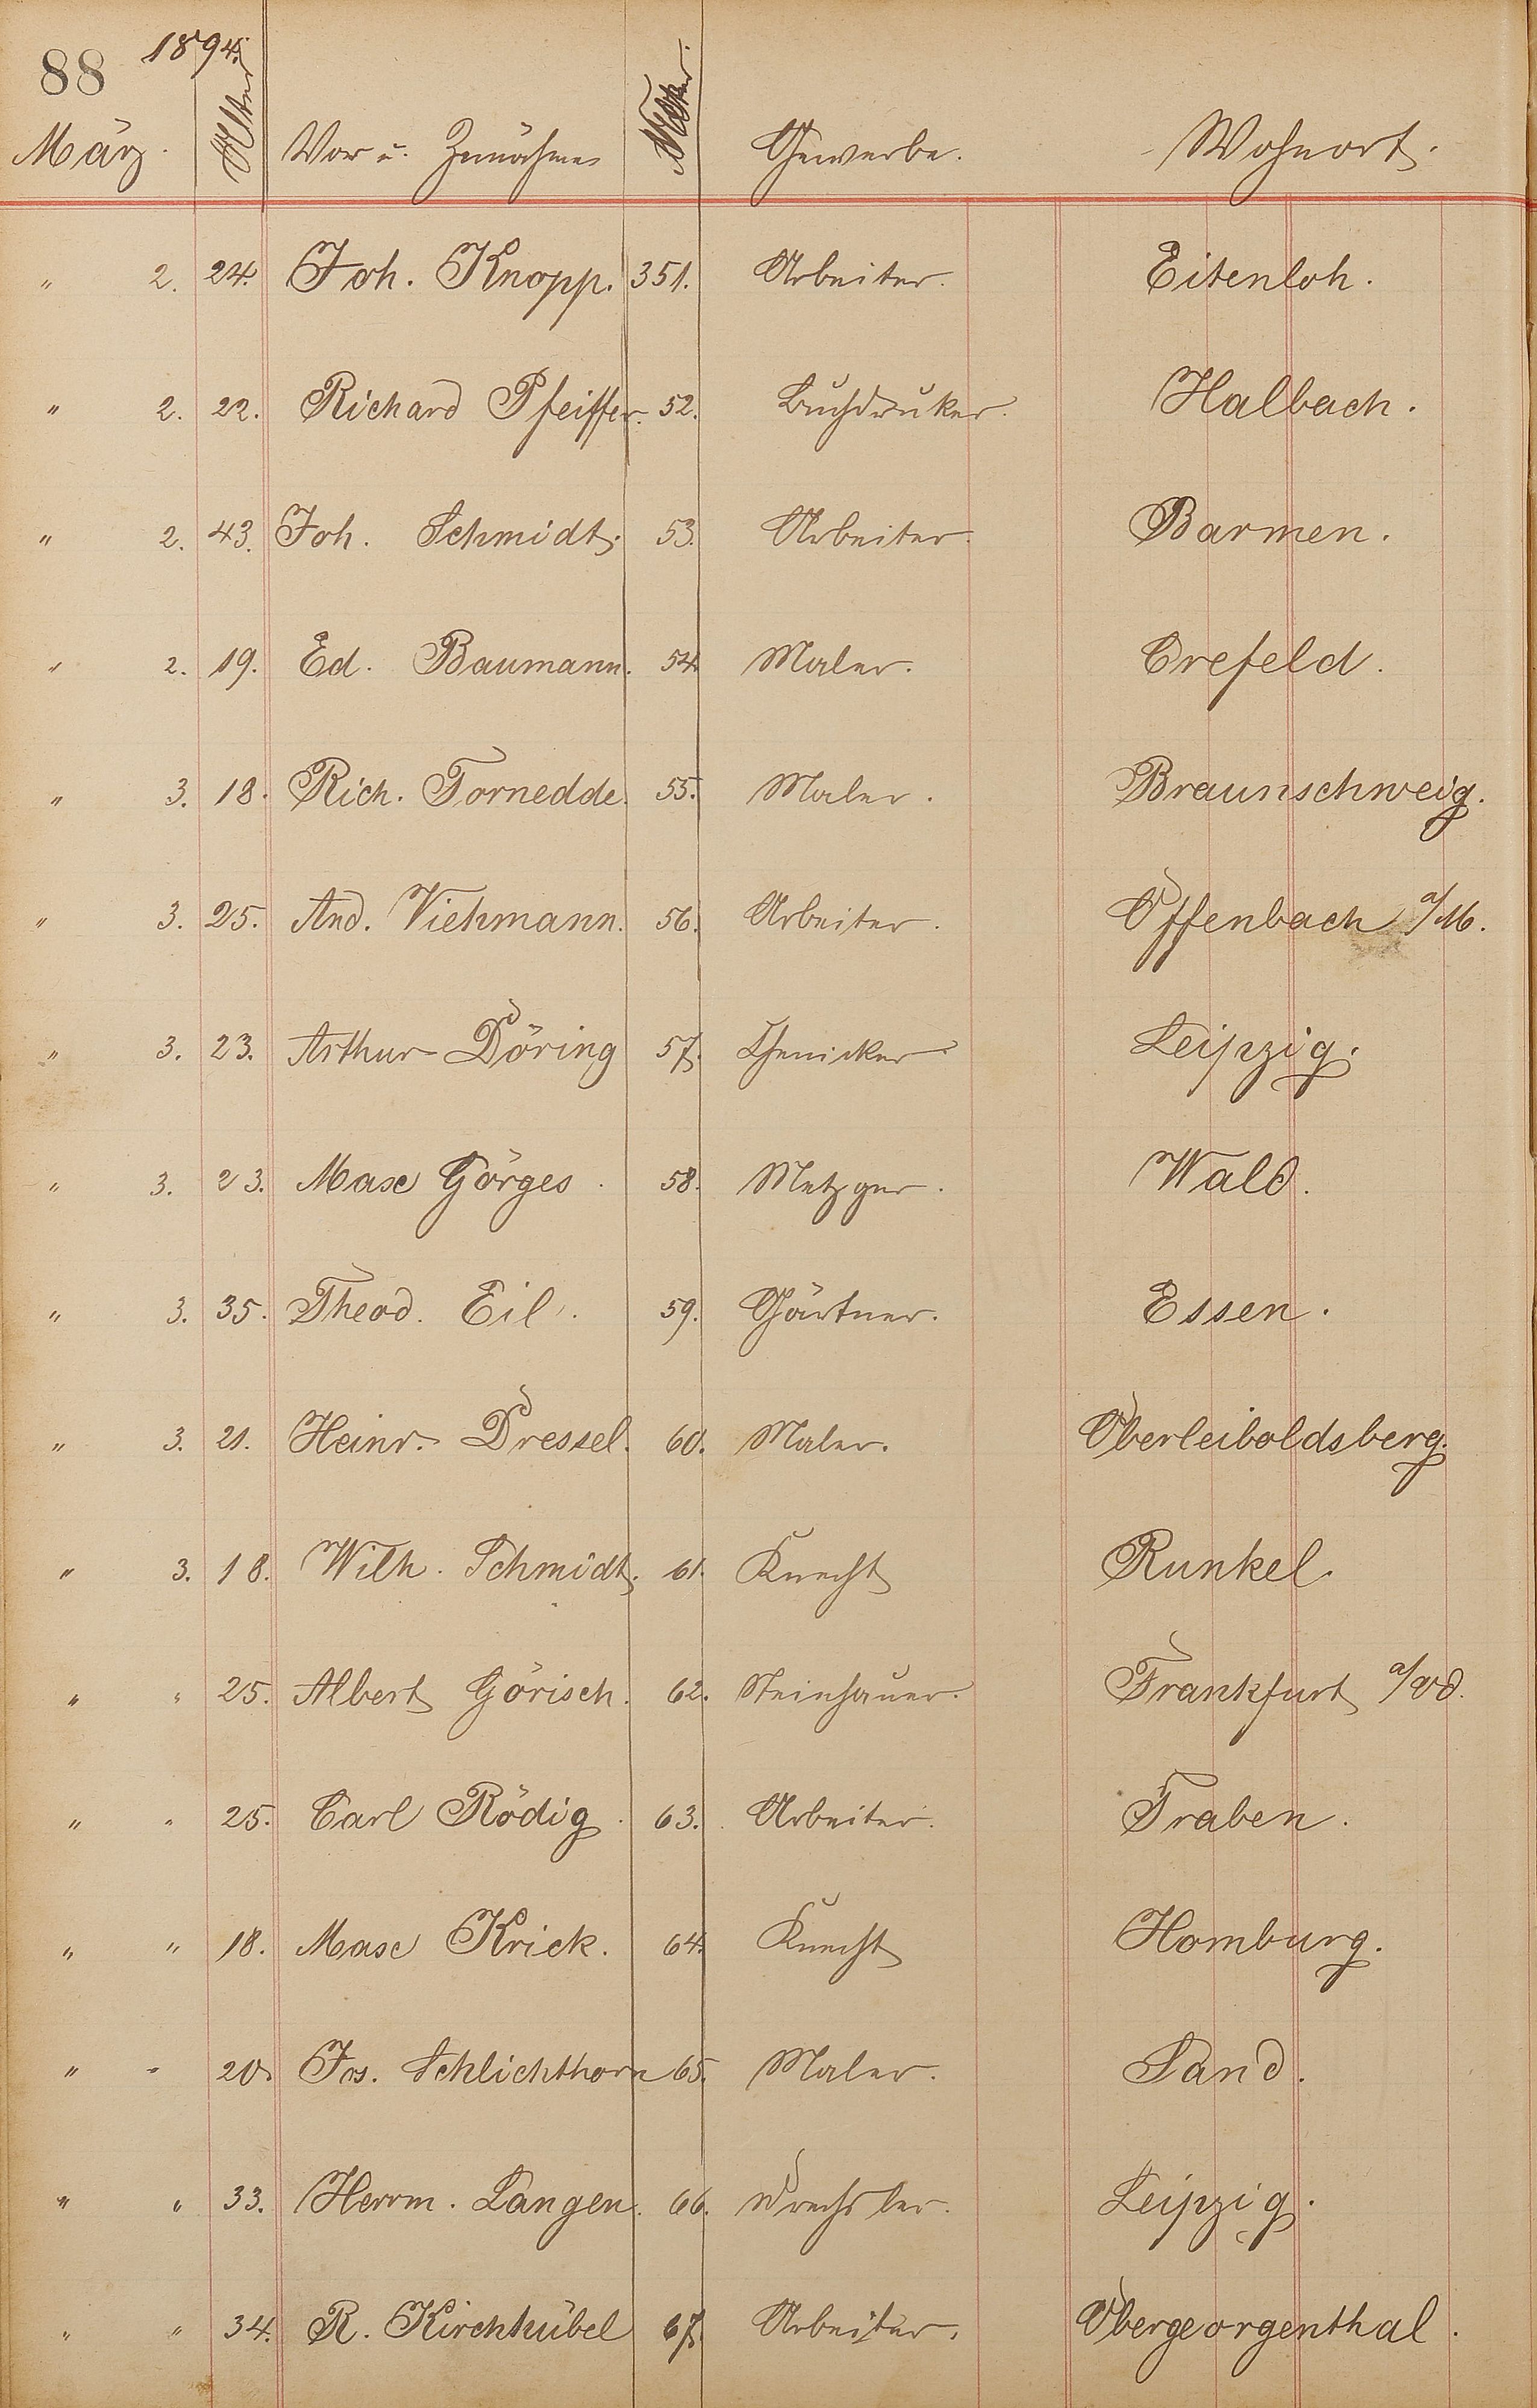 88 1894.
März. Alter Vor u. Zunahme Numer. Gewerbe. Wohnort.
" 2. 24. Joh. Knopp. 351. Arbeiter. Eitenloh.
" 2. 22. Richard Pfeiffer. 52. Buchdruker. Halbach.
" 2. 43. Joh. Schmidt. 53. Arbeiter. Barmen.
" 2. 19. Ed. Baumann. 54. Maler. Crefeld.
" 3. 18. Rich. Tornedde. 55. Maler. Braunschweig.
" 3. 25. And. Viehmann. 56. Arbeiter. Offenbach a/M.
" 3. 23. Arthur Döring 57. Chemicker. Leipzig.
" 3. 23. Max Görges. 58. Metzger. Wald.
" 3. 35. Theod. Eil. 59. Gärtner. Essen.
" 3. 21. Heinr. Dressel. 60. Maler. Oberleiboldsberg.
" 3. 18. Wilh. Schmidt. 61. Knecht Runkel.
" " 25. Albert Görisch. 62. Steinhauer. Frankfurt a/Od.
" " 25. Carl Rödig. 63. Arbeiter. Traben.
" " 18. Max Krick. 64. Knecht Homburg.
" " 20. Jos. Schlichthorn 65. Maler. Sand.
" " 33. Herrm. Langen. 66. Drechsler. Leipzig.
" " 34. R. Kirchhübel 67. Arbeiter. Obergeorgenthal.